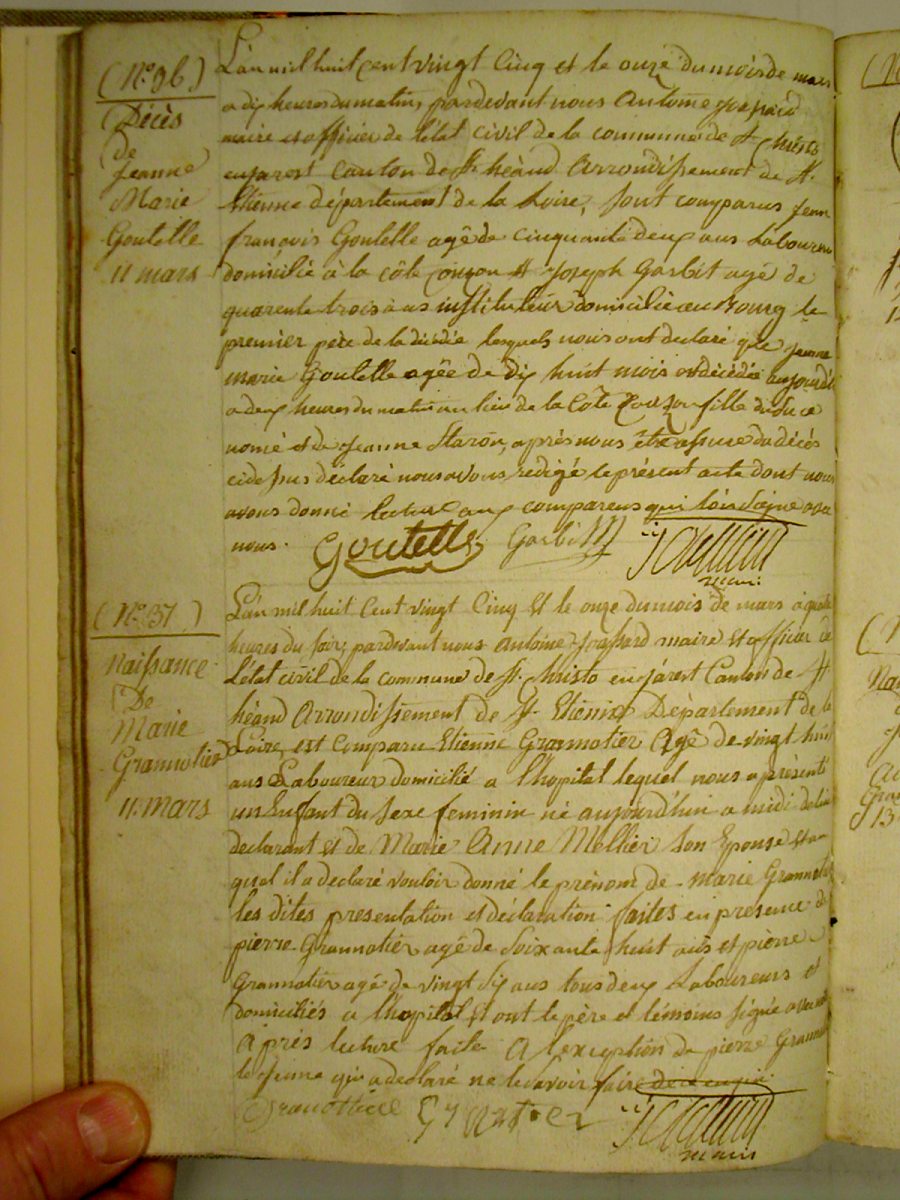 (N°. 36)
Décès
De
Jeanne
Marie
Goutelle
11 mars
L'an mil huit cent vingt Cinq et le onze du mois de mars
a dix heures du matin, pardevant nous Antoine
maire et officier de l'état civil de la commune de St. Christo
en jarest Canton de St. héand Arrondissement de St.
Etienne département de la Loire, sont comparus Jean
françois Goutelle agé de cinquante deux ans Laboureur
domicilié à la côte Couzon et Joseph Garbit agé de
quarente trois ans instituteur domicilié au Bourg le
premier père de la décédée lesquels nous ont declaré que jeanne
marie Goutelle agée de dix huit mois est décédée aujourd'h
a deux heures du matin au lieu de la Côte Couzon fille du sus
nomé et de Jeanne Staron, après nous être assuré du décés
cidessus déclaré nous avons redigé le présent acte dont nous
avons donné lecture aux comparens qui l'ont signé avec
nous.
Goutelle Garbit
maire
(N°. 37)
Naissance
De
Marie
Grannotier
11. mars
L'an mil huit Cent vingt Cinq Et le onze du mois de mars à quatre
heures du soir, pardevant nous Antoine maire et officier de
L'état civil de la commune de St. Christo en jarest Canton de St
héand Arrondissement de St. Etienne Département de la
Loire, est Comparu Etienne Grannotier Agé de vingt huit
ans Laboureur domicilié a l'hopital lequel nous a présenté
un Enfant du Sexe feminin né aujourd'hui a midi de lui
declarant et de Marie Anne Mellier Son Epouse et au
quel il a declaré vouloir donné le prénom de marie Grannotier
les dites presentation et déclaration faites en presence de
pierre Grannotier agé de Soixante huit ans et pierre
Grannotier agé de vingt Six ans tous deux Laboureurs et
domiciliés a l'hopital et ont le père et témoins signé avec nous
Après lecture faite A l'exception de pierre Grannotier
le jeune qui a declaré ne le savoir faire de ce enquis
maire